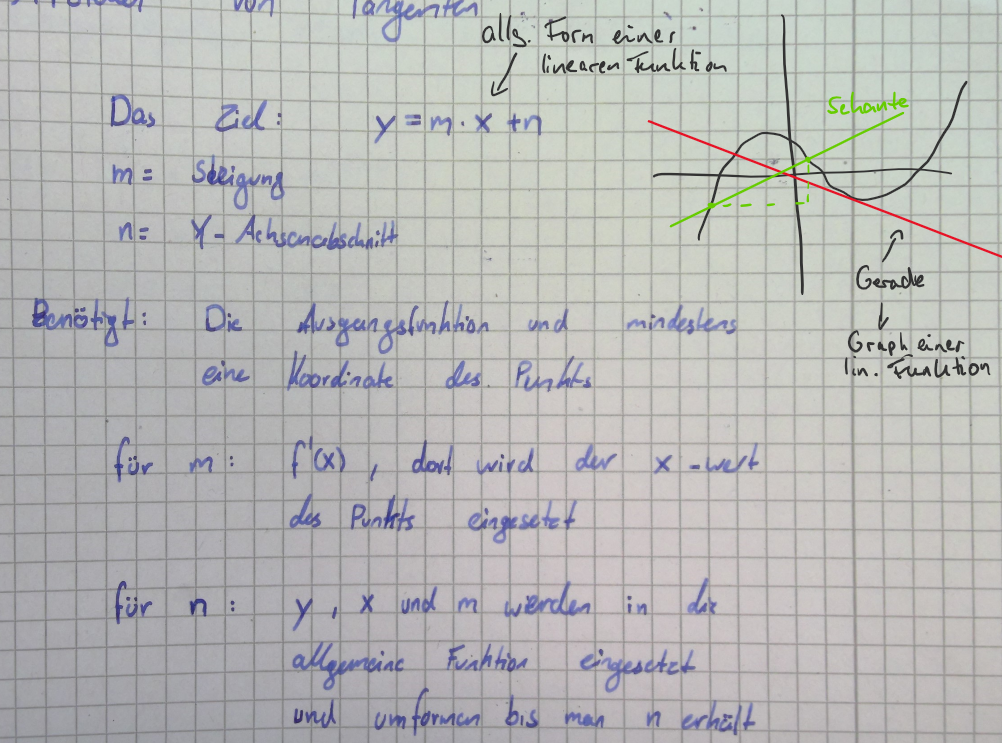 von Tangenten
allg. Form einer
linearen Funktion
Das Ziel: y = m · x + n
m = Steigung
n = Y - Achsenabschnitt
Sekante
Gerade
Graph einer
lin. Funktion
Benötigt: Die Ausgangsfunktion und mindestens
eine Koordinate des Punkts
für m: f'(x), dort wird der x-wert
des Punkts eingesetzt
für n: y, x und m werden in die
allgemeine Funktion eingesetzt
und umformen bis man n erhält